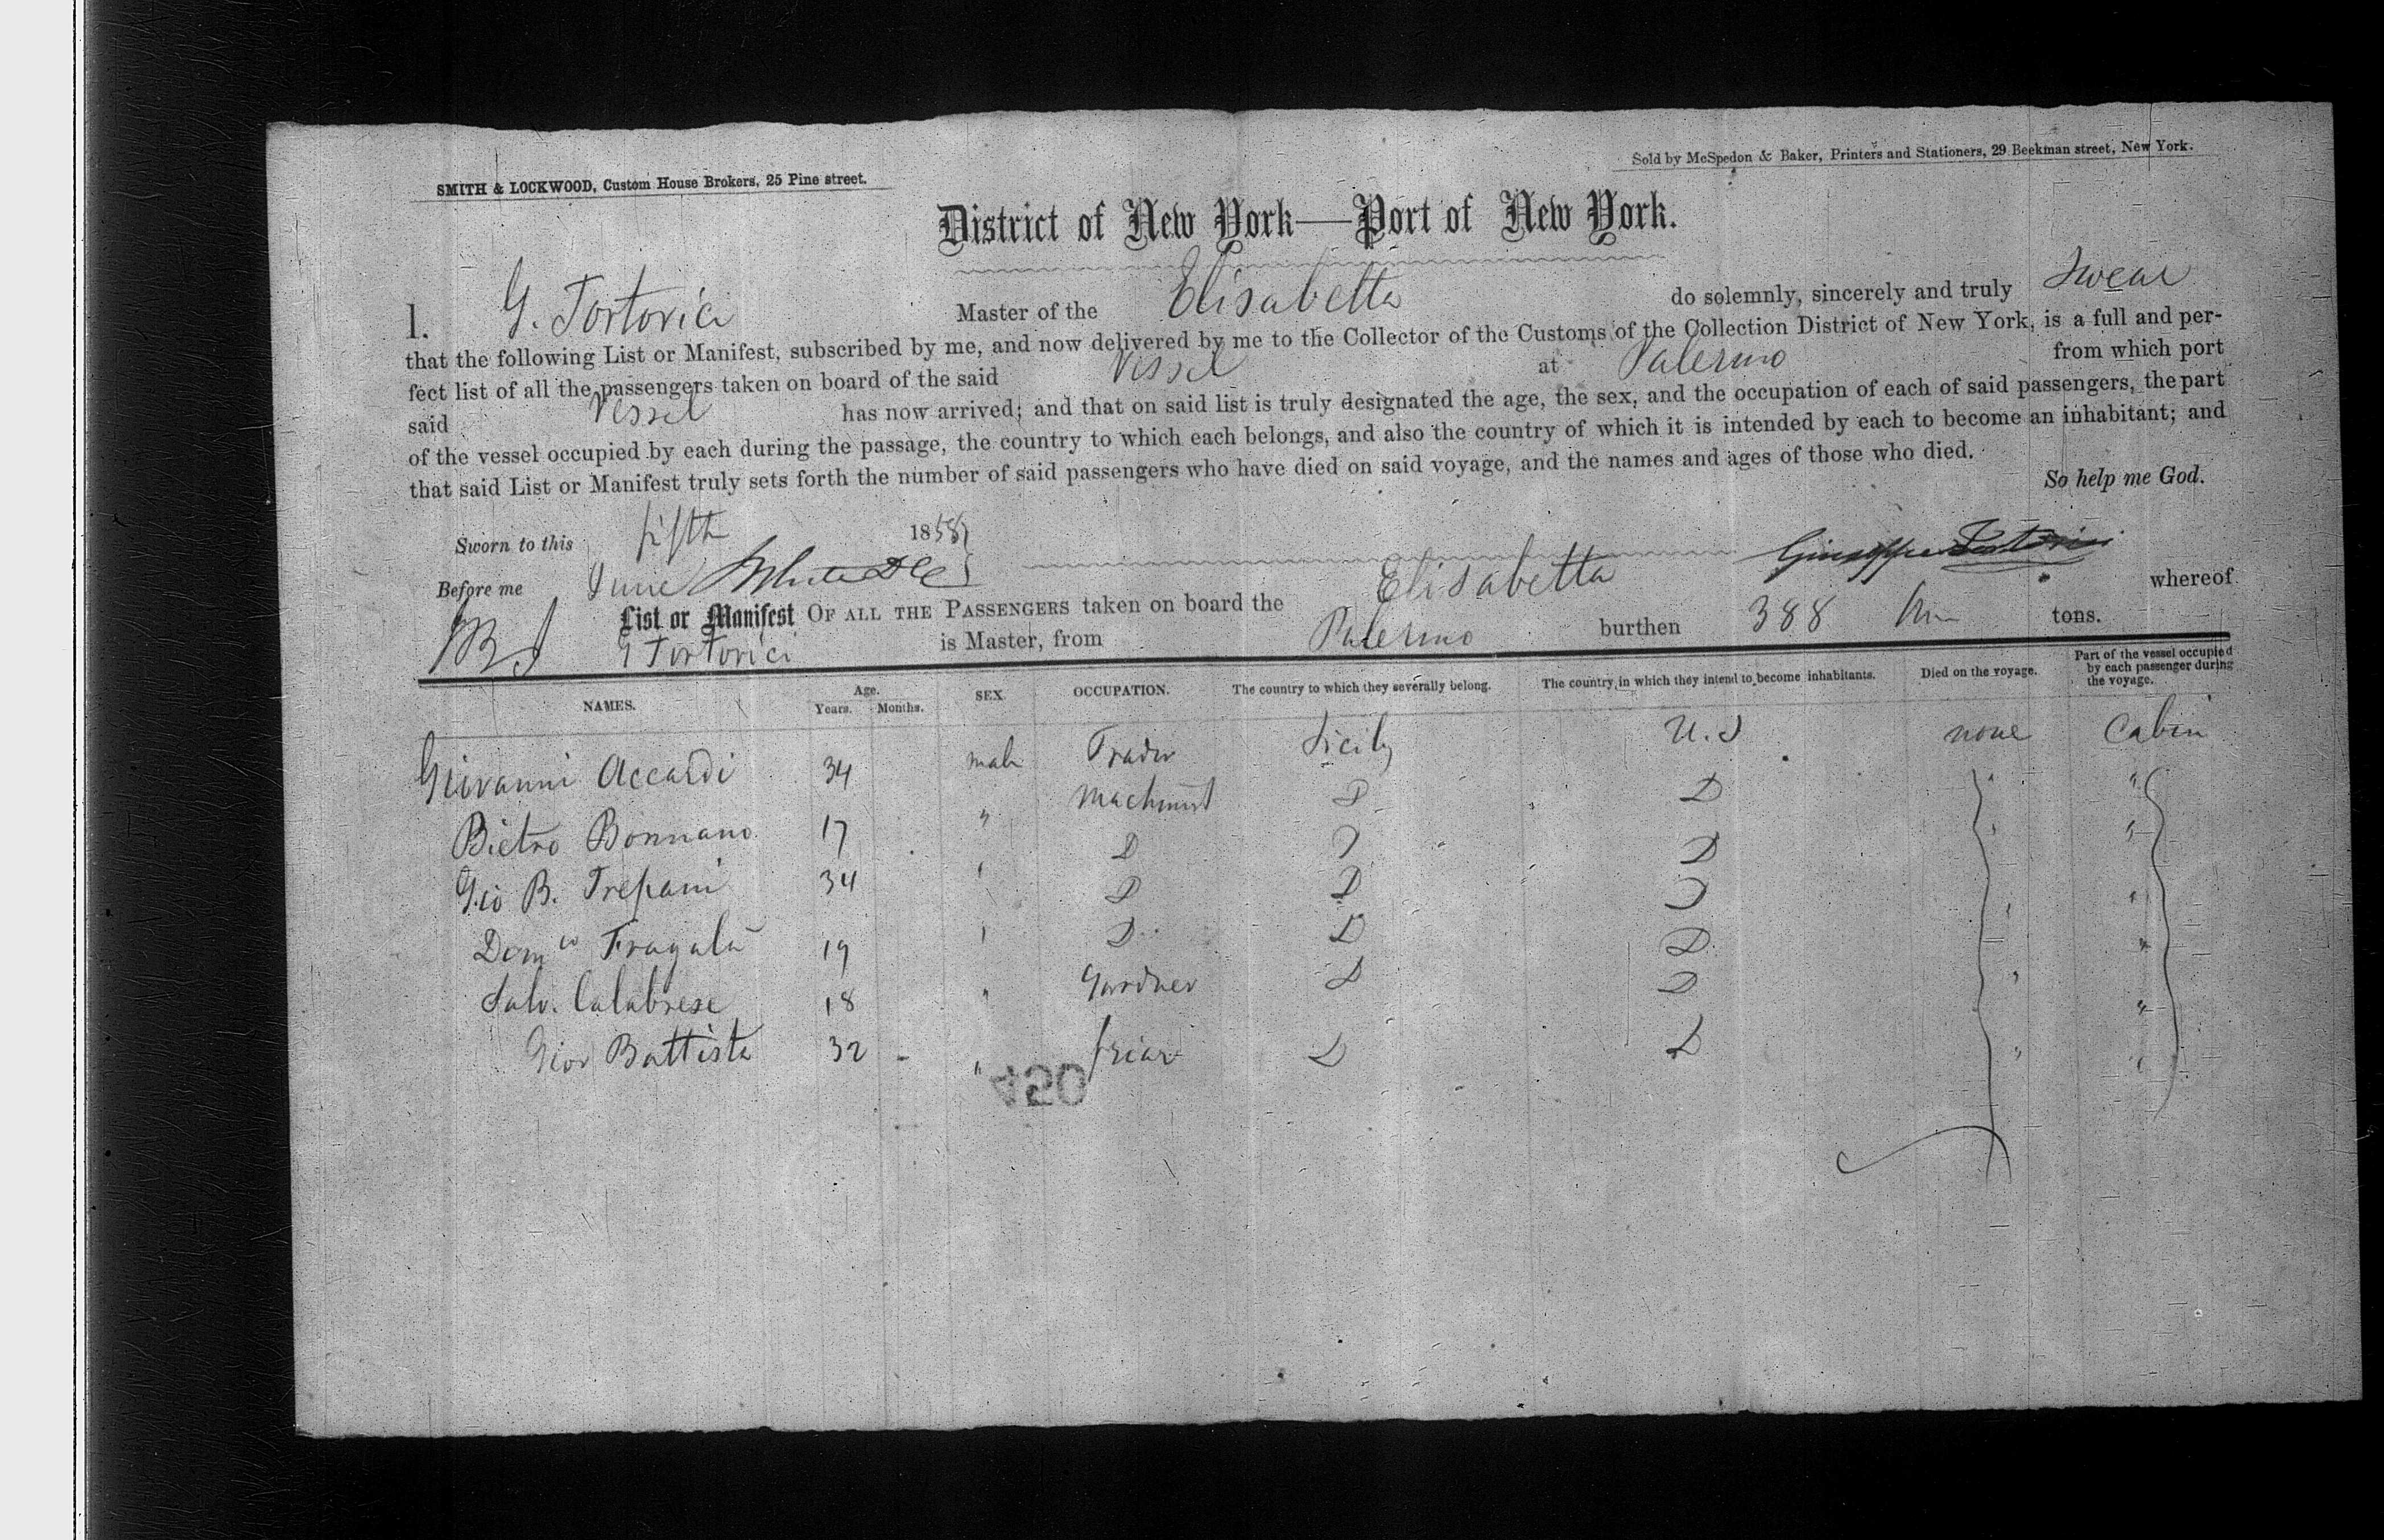 SMITH & LOCKWOOD, Custom House Brokers, 25 Pine street.
Sold by McSpedon & Baker, Printers and Stationers, 29 Beekman street, New York.
District of New York—Port of New York.
I. G. Tortorici Master of the Elisabetta do solemnly, sincerely and truly Swear
that the following List or Manifest, subscribed by me, and now delivered by me to the Collector of the Customs of the Collection District of New York, is a full and per-
fect list of all the passengers taken on board of the said Vessel at Palermo from which port
said Vessel has now arrived; and that on said list is truly designated the age, the sex, and the occupation of each of said passengers, the part
of the vessel occupied by each during the passage, the country to which each belongs, and also the country of which it is intended by each to become an inhabitant; and
that said List or Manifest truly sets forth the number of said passengers who have died on said voyage, and the names and ages of those who died.
So help me God.
Sworn to this fifth 1858
Before me June Giuseppe Tortorici
List or Manifest OF ALL THE PASSENGERS taken on board the Elisabetta whereof
G Tortorici is Master, from Palermo burthen 388 tons.
NAMES. Age. Years. Months. SEX. OCCUPATION. The country to which they severally belong. The country in which they intend to become inhabitants. Died on the voyage. Part of the vessel occupied by each passenger during the voyage.
Giovanni Accardi 34 male Trader Sicily U.S none Cabin
Bietro Bonnano 17 " Machinist D D " "
Gio B. Trepani 34 " D D D " "
Dom co Fragala 19 " D D D " "
Salv. Calabrese 18 " D D D " "
Giov Battista 32 - " Gardner D D " "
friar D D " "
420